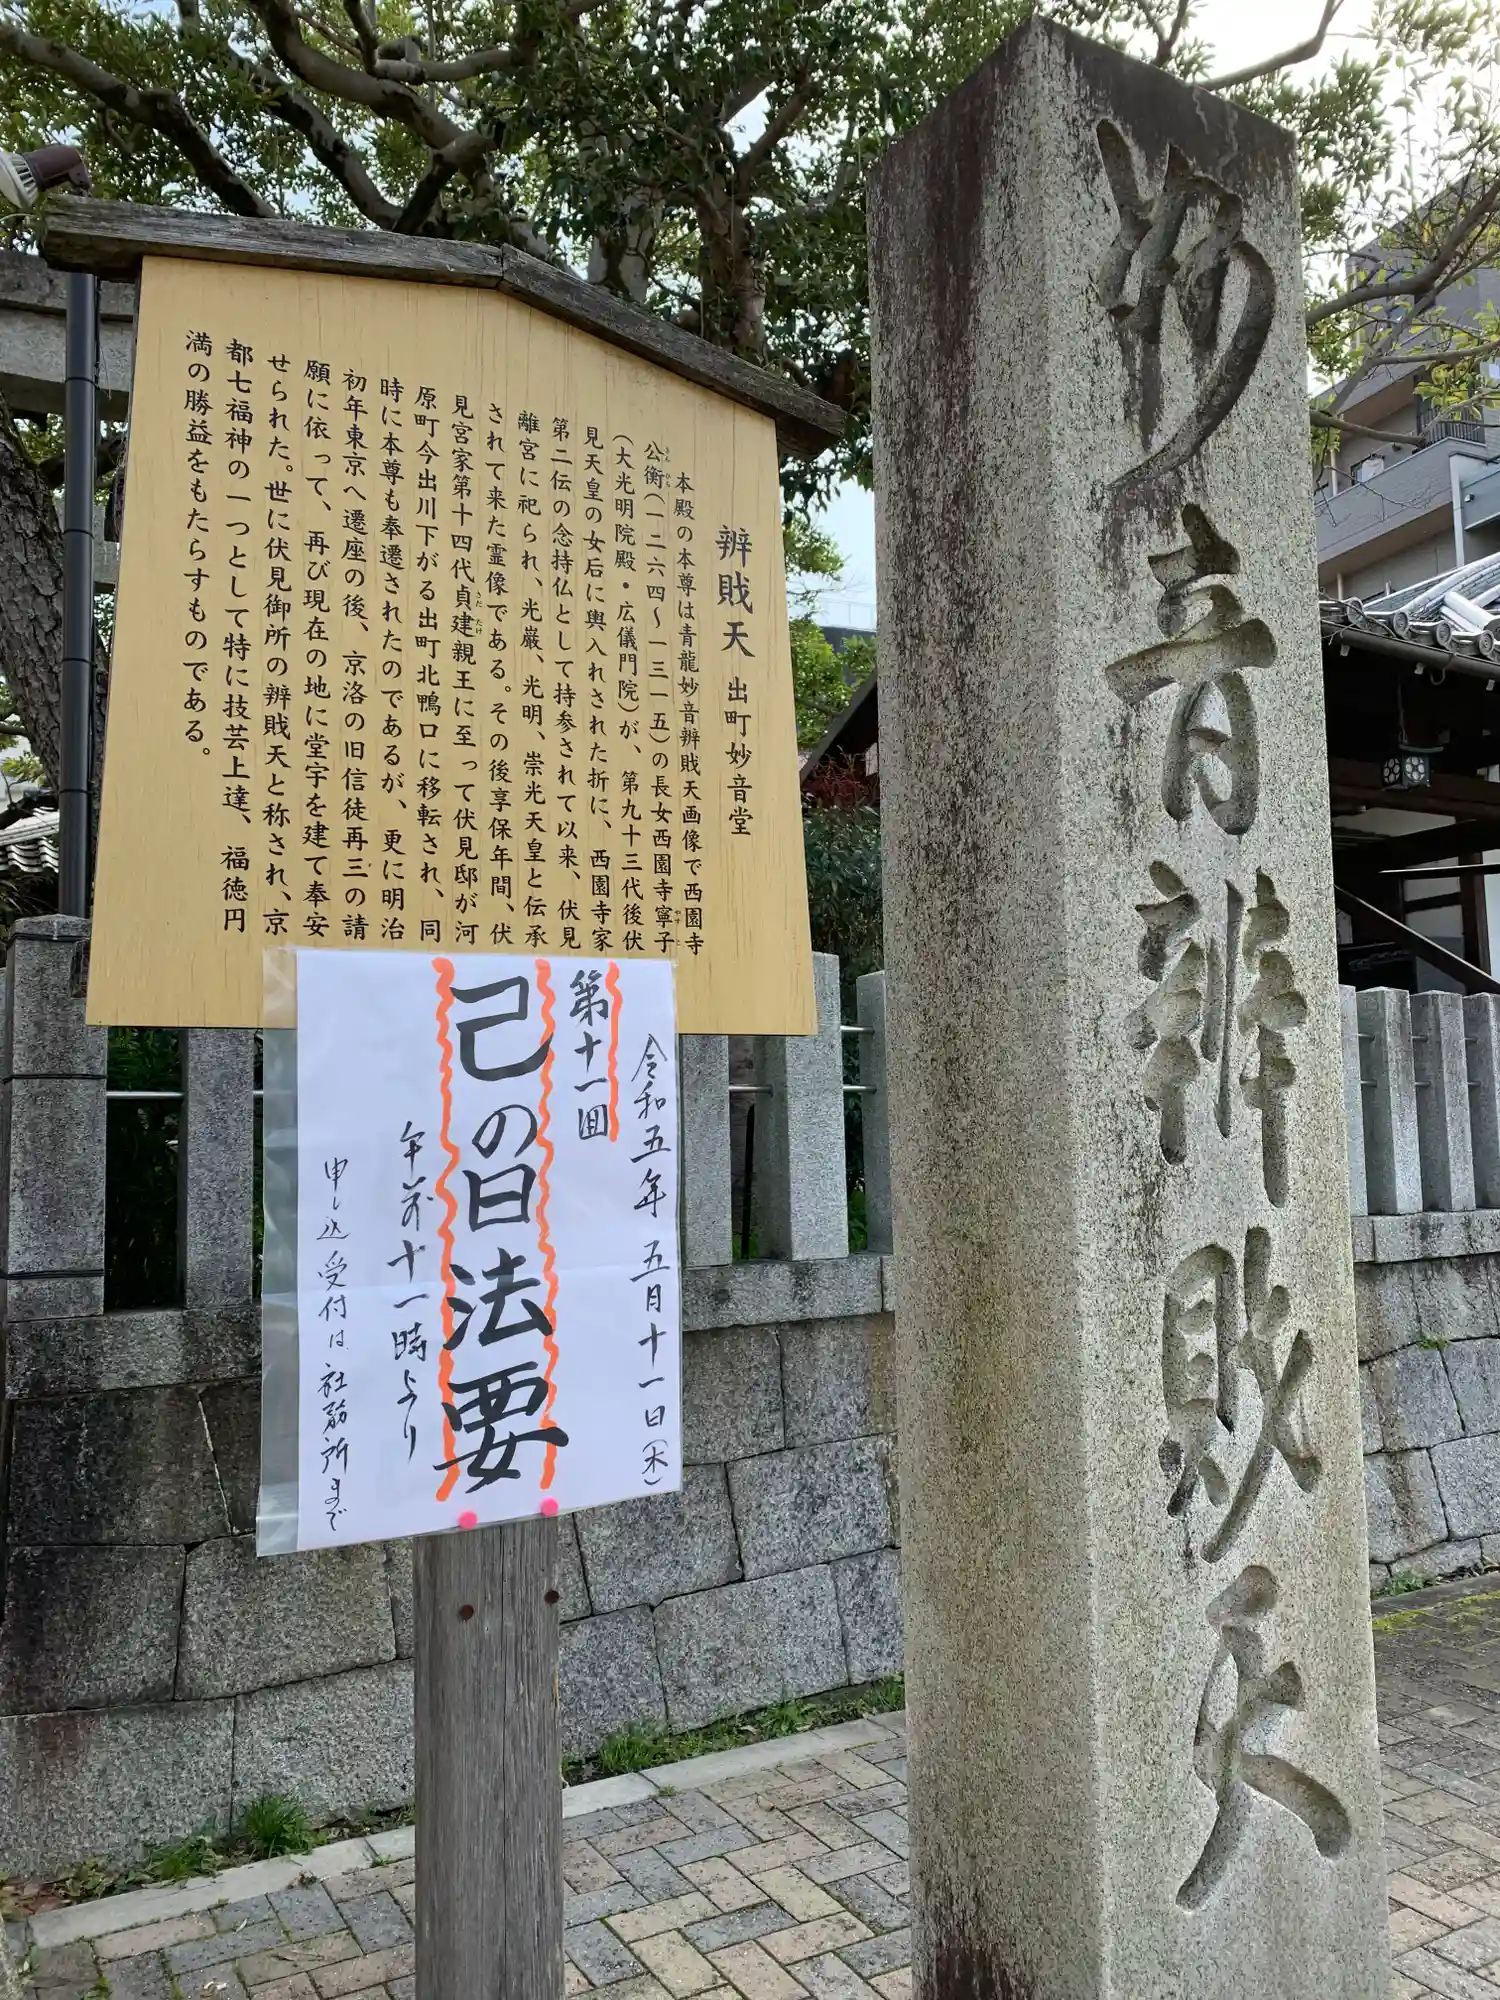 妙音辨財天
辨戝天 出町妙音堂
本殿の本尊は青龍妙音辨戝天画像で西園寺
公衡(一二六四〜一三一五)の長女西園寺寧子
(大光明院殿・広儀門院)が、第九十三代後伏
見天皇の女后に輿入れされた折に、西園寺家
第二伝の念持仏として持参されて以来、伏見
離宮に祀られ、光厳、光明、崇光天皇と伝承
されて来た霊像である。その後享保年間、伏
見宮家第十四代貞建親王に至って伏見邸が河
原町今出川下がる出町北鴨口に移転され、同
時に本尊も奉遷されたのであるが、更に明治
初年東京へ遷座の後、京洛の旧信徒再三の請
願に依って、再び現在の地に堂宇を建て奉安
せられた。世に伏見御所の辨戝天と称され、京
都七福神の一つとして特に技芸上達、福徳円
満の勝益をもたらすものである。
令和五年 五月十一日(木)
第十一回
己の日法要
午前十一時より
申し込受付は社務所まで